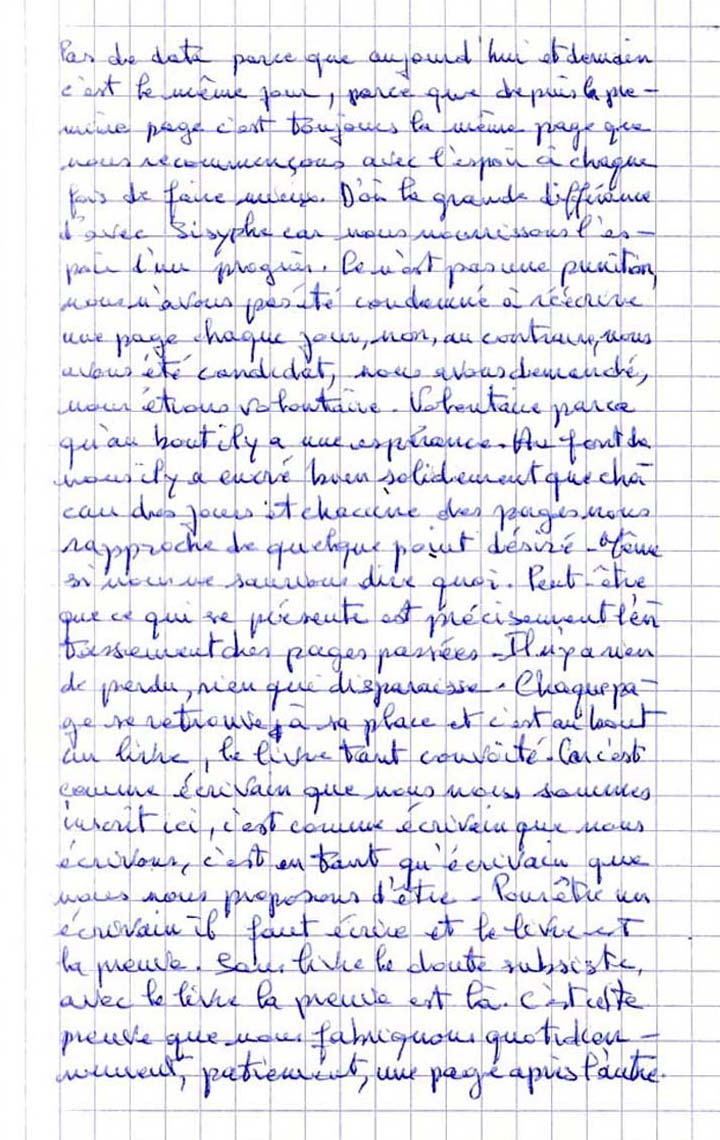 Pas de date parce que aujourd'hui et demain
c'est le même jour, parce que depuis la pre-
mière page c'est toujours la même page que
nous recommençons avec l'espoir à chaque
fois de faire mieux. D'où la grande différence
d'avec Sisyphe car nous nourrissons l'es-
poir d'un progrès. Ce n'est pas une punition,
nous n'avons pas été condamné à réécrire
une page chaque jour, non, au contraire, nous
avons été candidat, nous avons demandé,
nous étions volontaire. Volontaire parce
qu'au bout il y a une espérance. Au fond de
nous il y a encré bien solidement que cha
cun des jours et chacune des pages nous
rapproche de quelque point désiré. Même
si nous ne saurions dire quoi. Peut-être
que ce qui se présente est précisément l'en
tassement des pages passées. Il n'y a rien
de perdu, rien qui disparaisse. Chaque pa-
ge se retrouve à sa place et c'est au bout
un livre, le livre tant convoité. Car c'est
comme écrivain que nous nous sommes
inscrit ici, c'est comme écrivain que nous
écrivons, c'est en tant qu'écrivain que
nous nous proposons d'être. Pour être un
écrivain il faut écrire et le livre est
la preuve. Sans livre le doute subsiste,
avec le livre la preuve est là. C'est cette
preuve que nous fabriquons quotidien-
nement, patiemment, une page après l'autre.